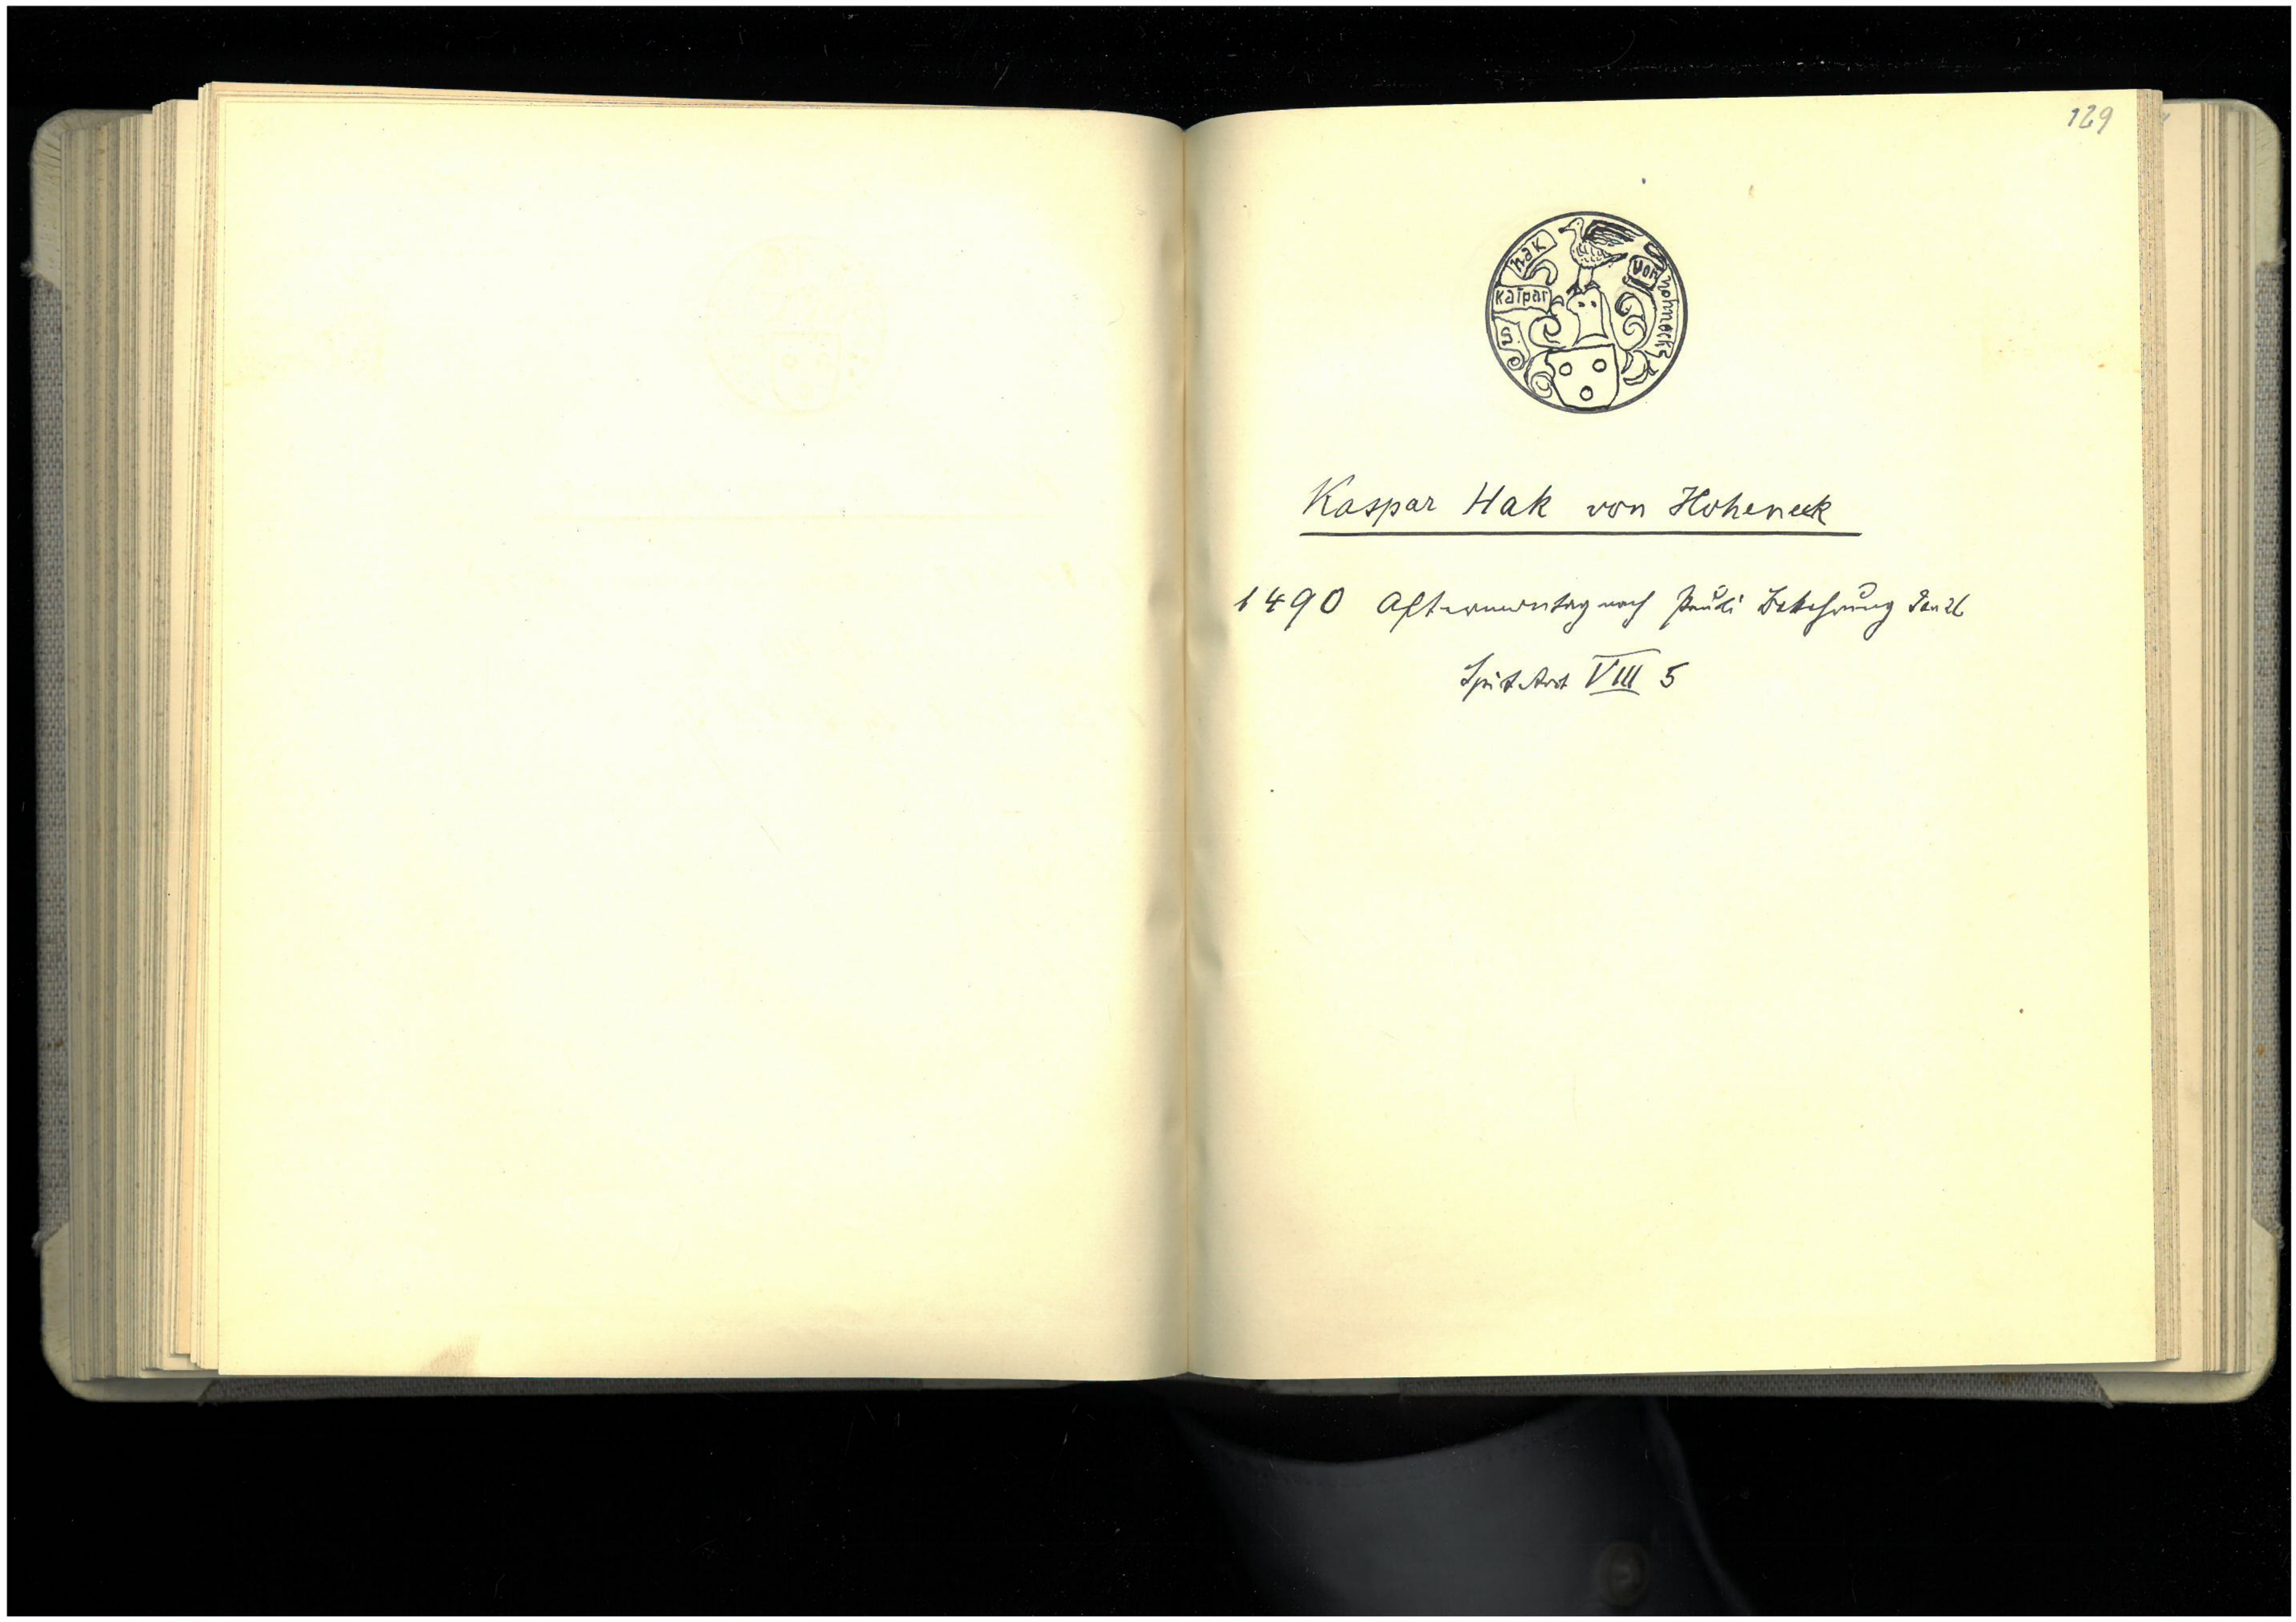 129
S
kaspar
hak
von
hohneck
Kaspar Hak von Hoheneck
1490 Aftermontag nach Pauli Bekehrung Jan 26
Spit Arch VIII 5